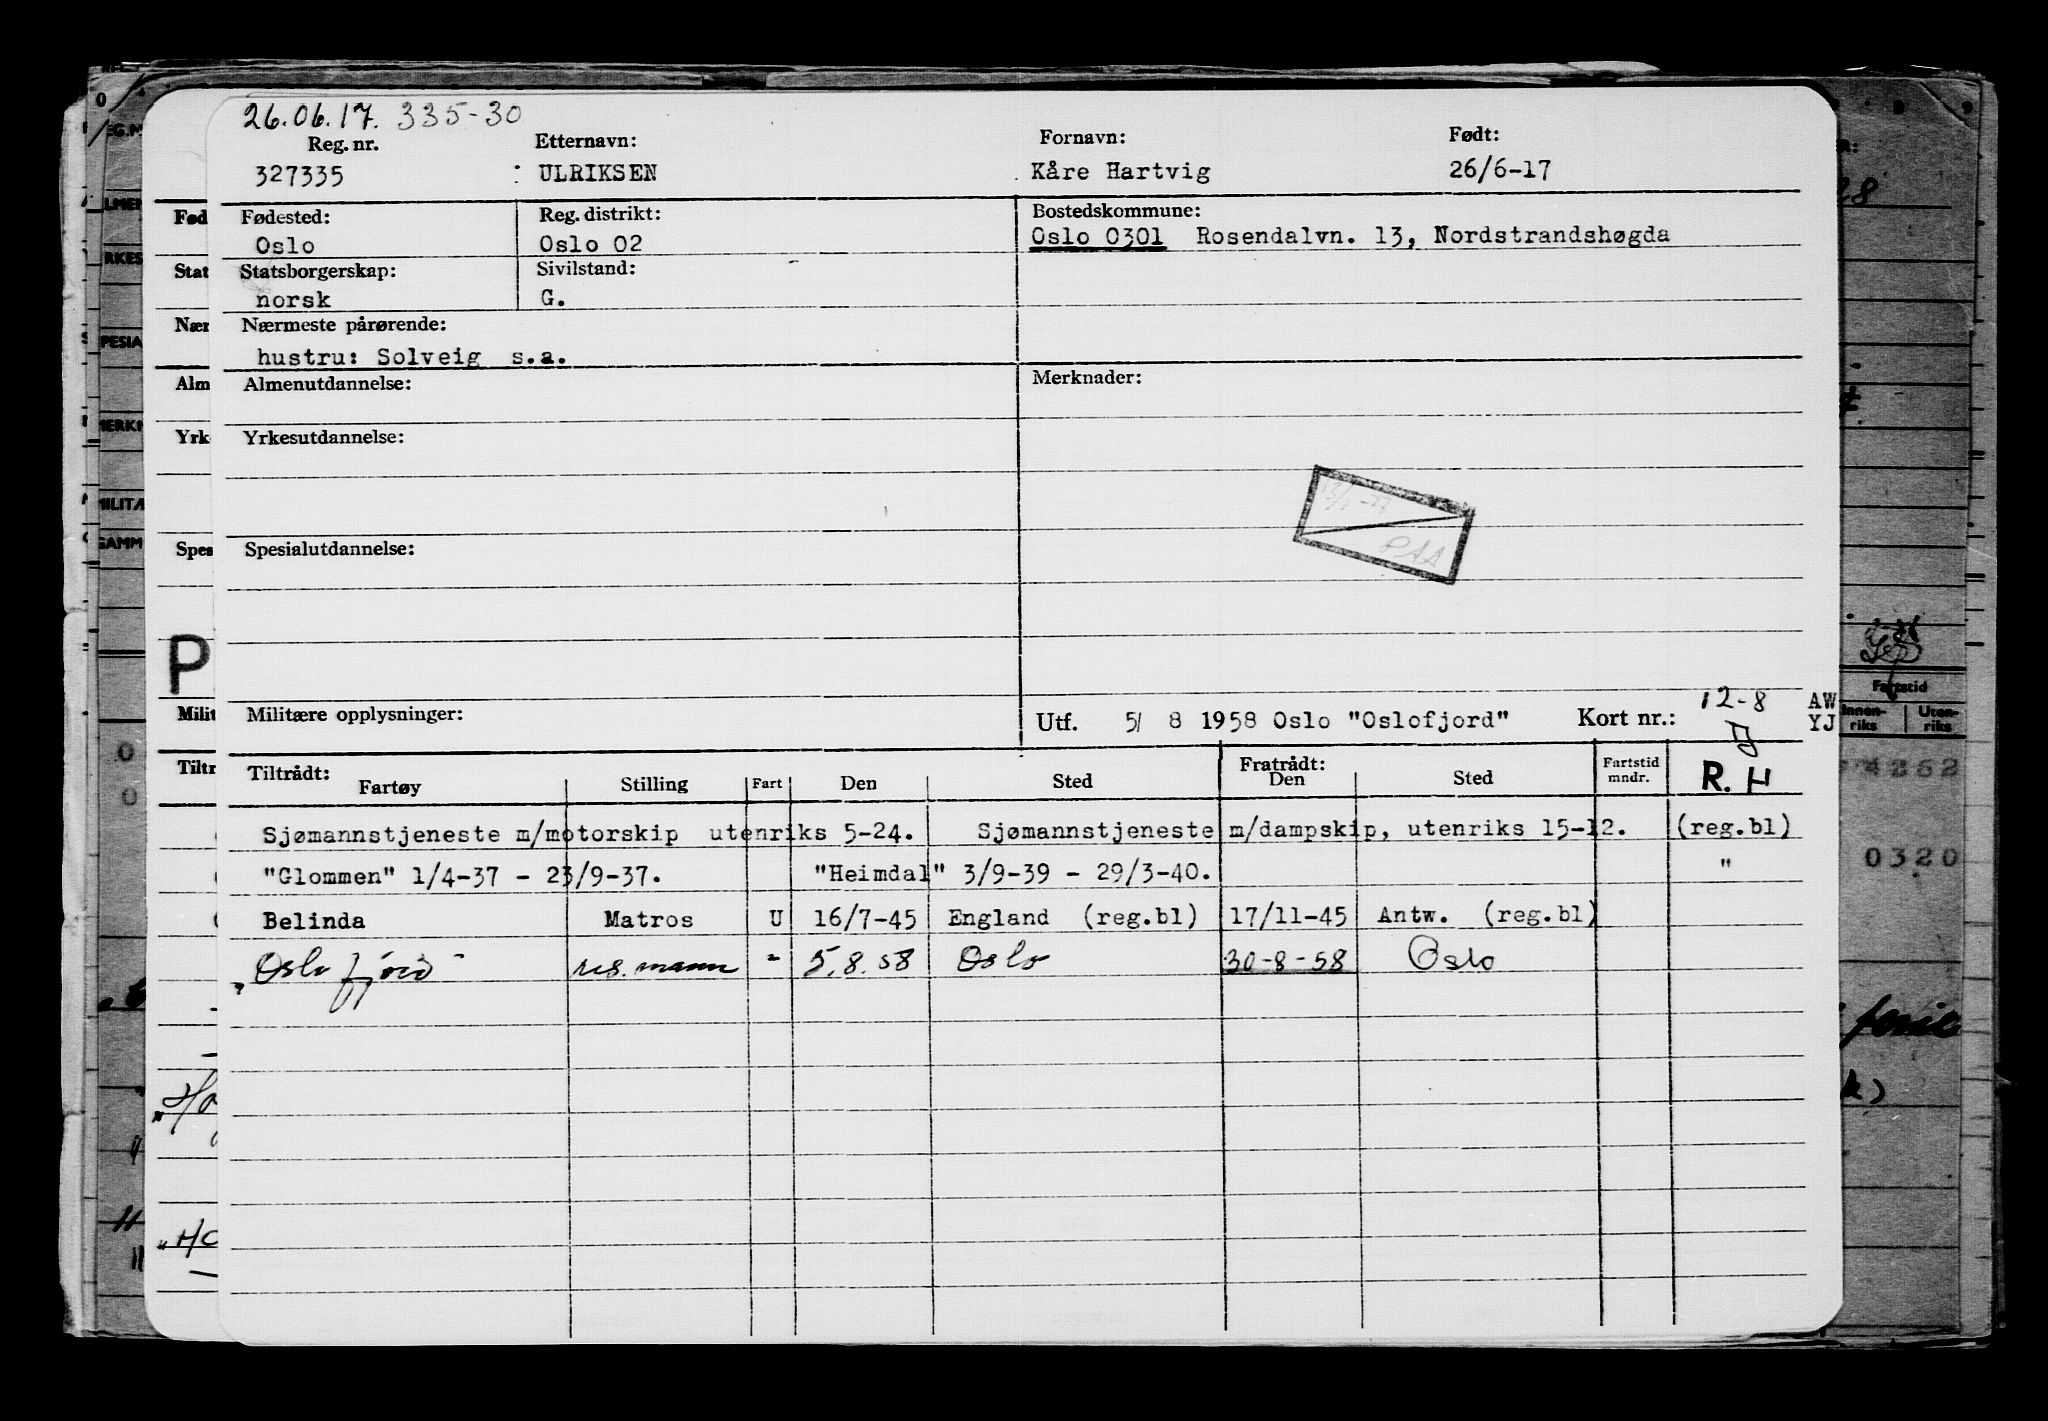 26.06.17. 335-30
Reg. nr. Etternavn: Fornavn: Født:
327335 : ULRIKSEN Kåre Hartvig 26/6-17
Fødested: Reg. distrikt: Bostedskommune:
Oslo Oslo 02 Oslo 0301 Rosendalvn. 13, Nordstrandshøgda
Statsborgerskap: Sivilstand:
norsk G.
Nærmeste pårørende:
hustru: Solveig s.a.
Almenutdannelse: Merknader:
Yrkesutdannelse:
PAA
Spesialutdannelse:
P
Militære opplysninger: Utf. 5/ 8 1958 Oslo "Oslofjord" Kort nr.: 12-8 AW
YJ
Tiltrådt: Fratrådt: Fartstid mndr. R. H
Fartøy Stilling Fart Den Sted Den Sted
Sjømannstjeneste m/motorskip utenriks 5-24. Sjømannstjeneste m/dampskip, utenriks 15-12. (reg.bl)
"Glommen" 1/4-37 - 23/9-37. "Heimdal" 3/9-39 - 29/3-40. "
Belinda Matros U 16/7-45 England (reg.bl) 17/11-45 Antw. (reg.bl)
"Oslofjord" res. mann " 5.8.58 Oslo 30-8-58 Oslo
Fartstid
Innen-riks Uten-riks
0320